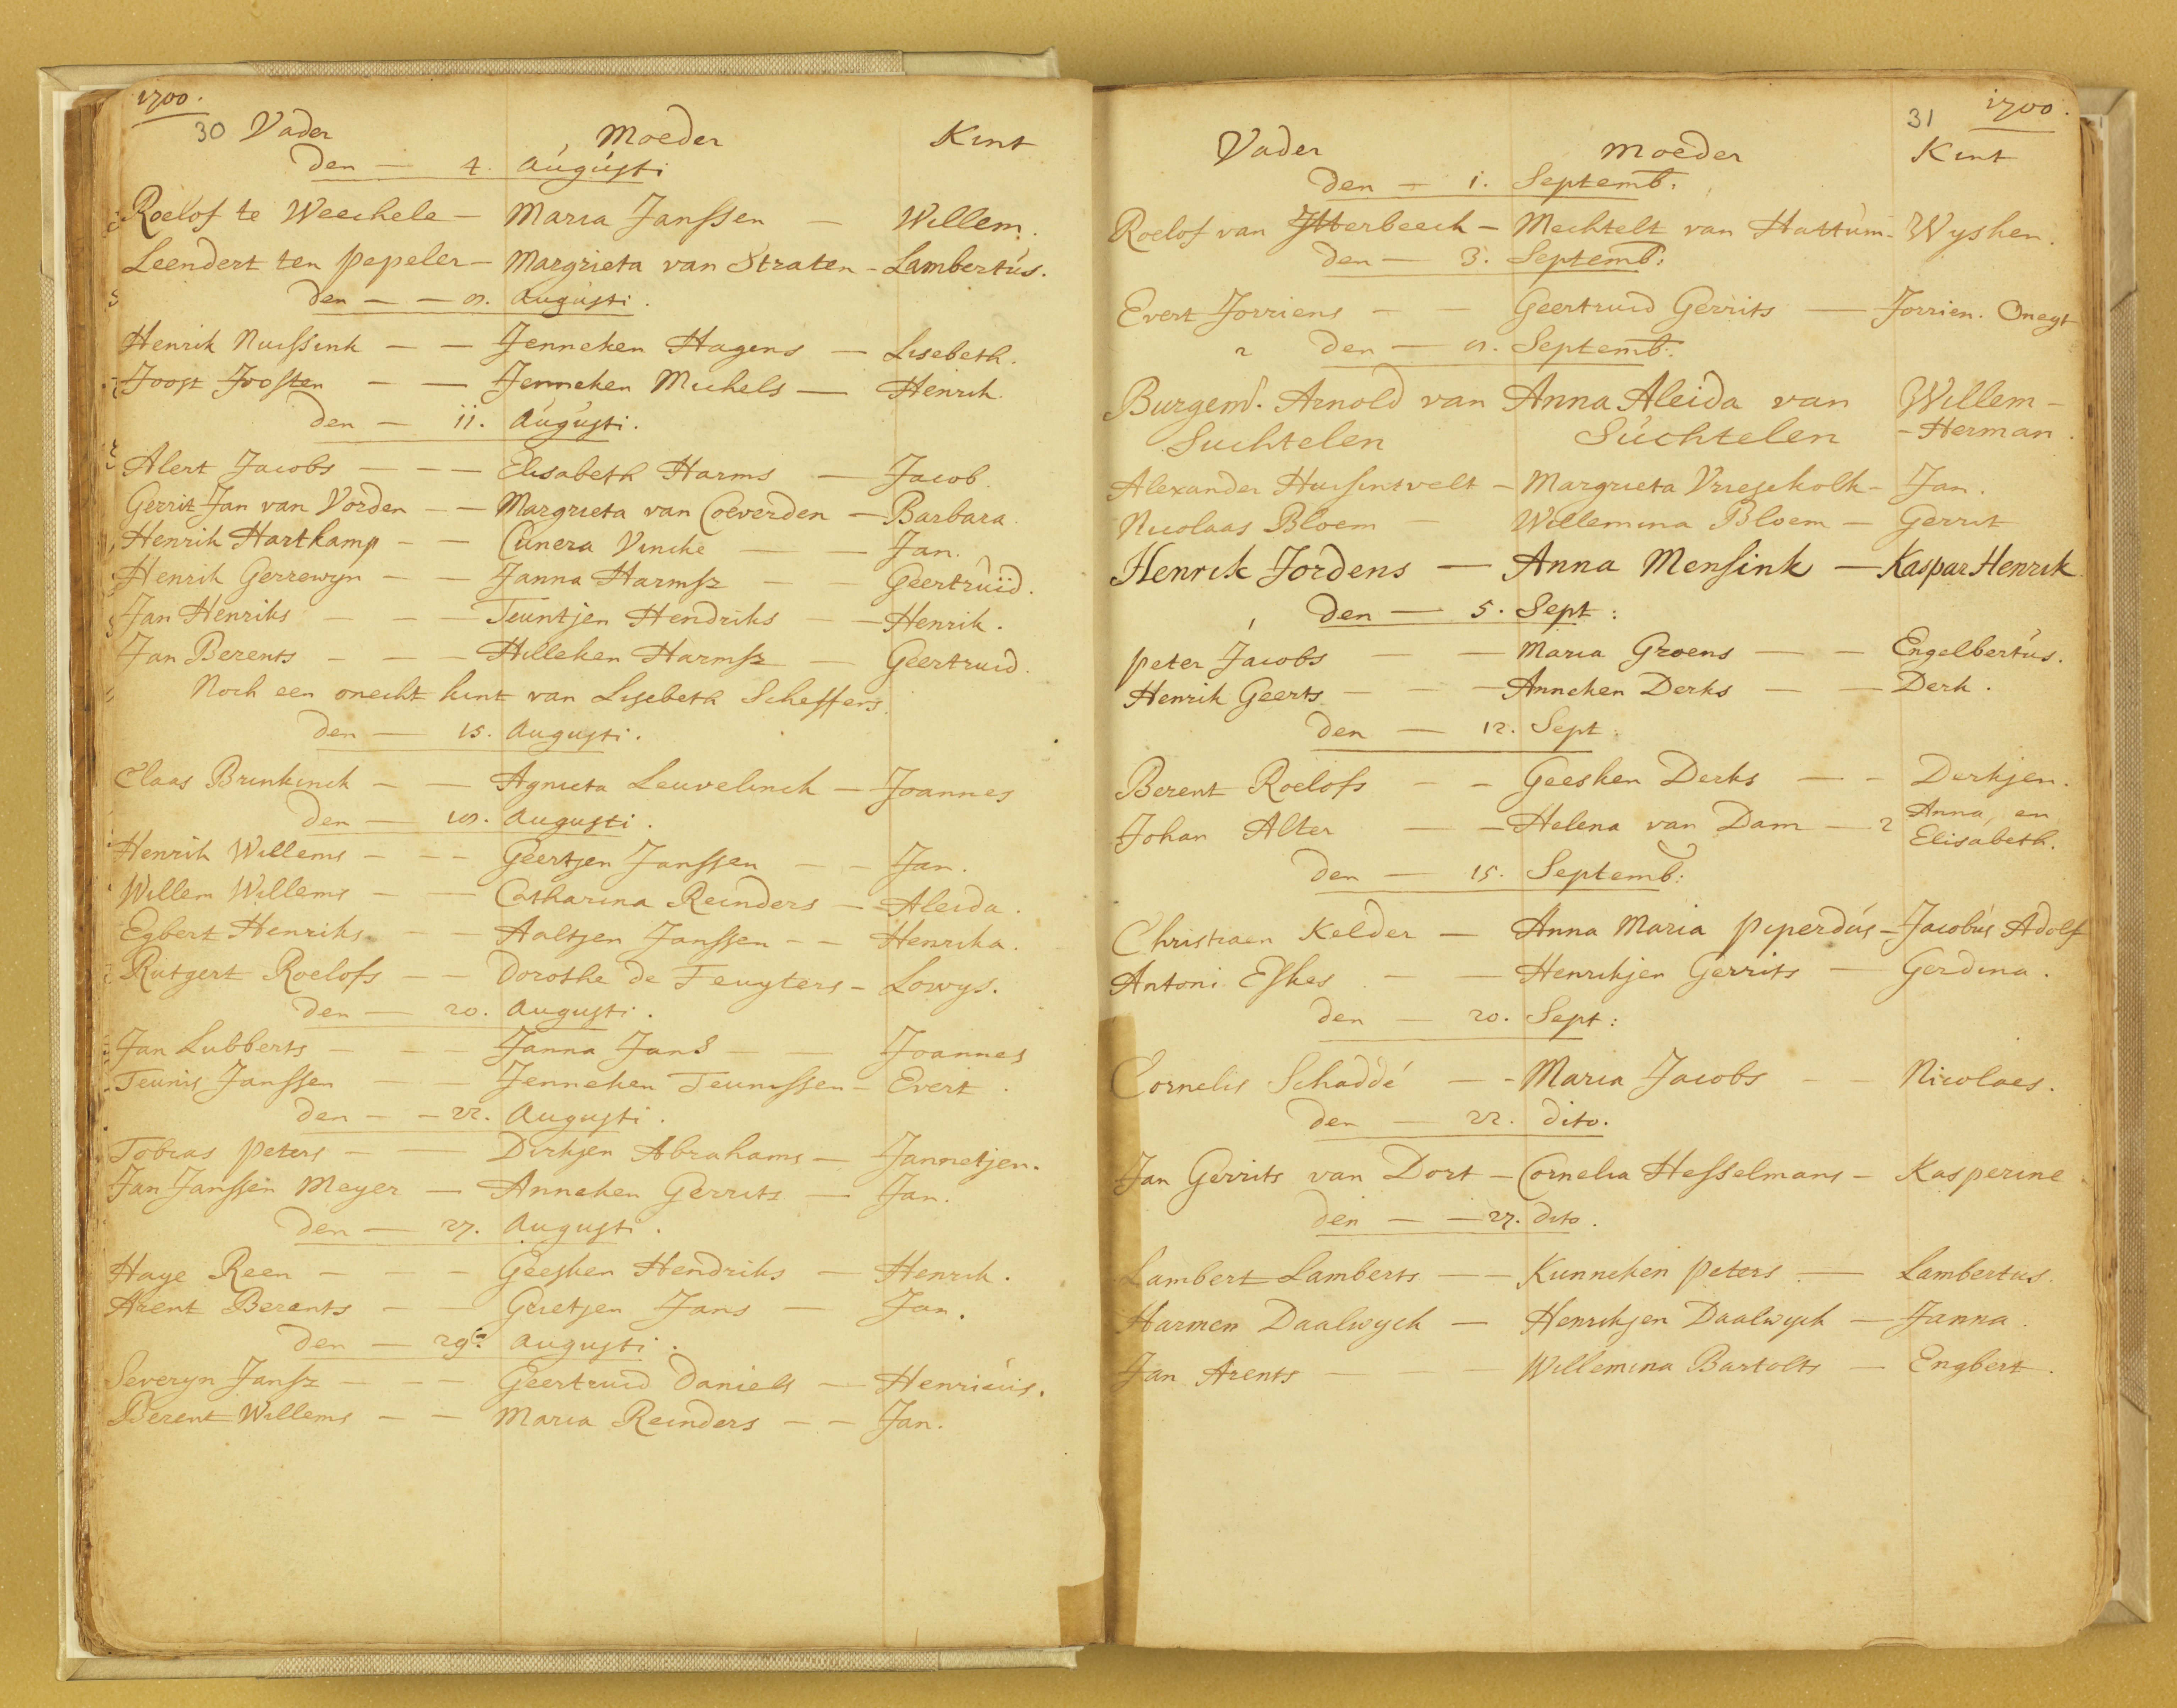 1700.
30 Vader Moeder Kint
den — 4. Augusti
Roelof te Weechele — Maria Janssen — Willem.
Leendert ten pepeler — Margrieta van Straten — Lambertús.
den — — Augústi.
Henrik Nuissink — — Jenneken Hagens — Lisebeth.
Joost Joosten — — Jenneken Michels — Henrik.
den — 11. Augústi.
Alert Jacobs — — — Elisabeth Harms — Jacob.
Gerrit Jan van Vorden — — Margrieta van Coeverden — Barbara.
Henrik Hartkamp — — Cunera Vincke — — Jan.
Henrik Gerrewyn — — Janna Harmsz — Geertruid.
Jan Henriks — — — Teuntjen Hendriks — — Henrik.
Jan Berents — — — Hilleken Harmsz — Geertruid.
Noch een onecht kint van Lisebeth Scheffers.
den — 15. Augusti.
Claas Brinkinck — — Agnieta Leuvelinck — Joannes
den — Augusti.
Henrik Willems — — — Geertjen Janssen — — Jan.
Willem Willems — — Catharina Reinders — Aleida.
Egbert Henriks — — Aaltjen Janssen — — Henrika.
Rutgert Roelofs — — Dorothe de Feuyters — Lowys.
den — 20. Augusti.
Jan Lubberts — — — Janna Jans — — Joannes
Teunis Janssen — — Jenneken Teunissen — Evert.
den — — 22. Augusti.
Tobias peters — — Dirkjen Abrahams — Jannetjen.
Jan Janssen Meyer — Anneken Gerrits — Jan.
den — 27. Augusti.
Haye Reen — — — Geesken Hendriks — Henrik.
Arent Berents — — Grietjen Jans — Jan.
den — 29. augusti.
Severyn Jansz — — — Geertruid Daniels — Henricús.
Berent Willems — — Maria Reinders — — Jan.
31 1700.
Vader Moeder Kint
den — 1. Septemb:
Roelof van Itterbeeck — Mechtelt van Hattúm — Wysken.
den — 3. Septemb:
Evert Jorriens — — Geertruid Gerrits — Jorrien. Onegt
den — Septemb:
Burgem. Arnold van Anna Aleida van Willem —
Suchtelen Súchtelen — Herman.
Alexander Huisintvelt — Margrieta Vriesekolk — Jan.
Nicolaas Bloem — Willemina Bloem — Gerrit
Henrik Jordens — Anna Mensink — Kaspar Henrik
den — 5. Sept:
peter Jacobs — — Maria Groens — — Engelbertús.
Henrik Geerts — — — Anneken Derks — — Derk.
den — 12. Sept.
Berent Roelofs — — Geesken Derks — — Derkjen.
Johan Alter — — Helena van Dam — 2 Anna, en
Elisabeth.
den — 15. Septemb:
Christiaen Kelder — Anna Maria piperdús — Jacobús Adolf
Antoni Eskes — — Henrikjen Gerrits — Gerdina.
den — 20. Sept:
Cornelis Schaddé — — Maria Jacobs — — Nicolaes.
den — 22. dito.
Jan Gerrits van Dort — Cornelia Hesselmans — Kasperine
den — — 27. dito.
Lambert Lamberts — — Kunneken peters — Lambertus.
Harmen Daalwyck — Henrikjen Daalwyck — Janna.
Jan Arents — — Willemina Bartolts — Engbert.